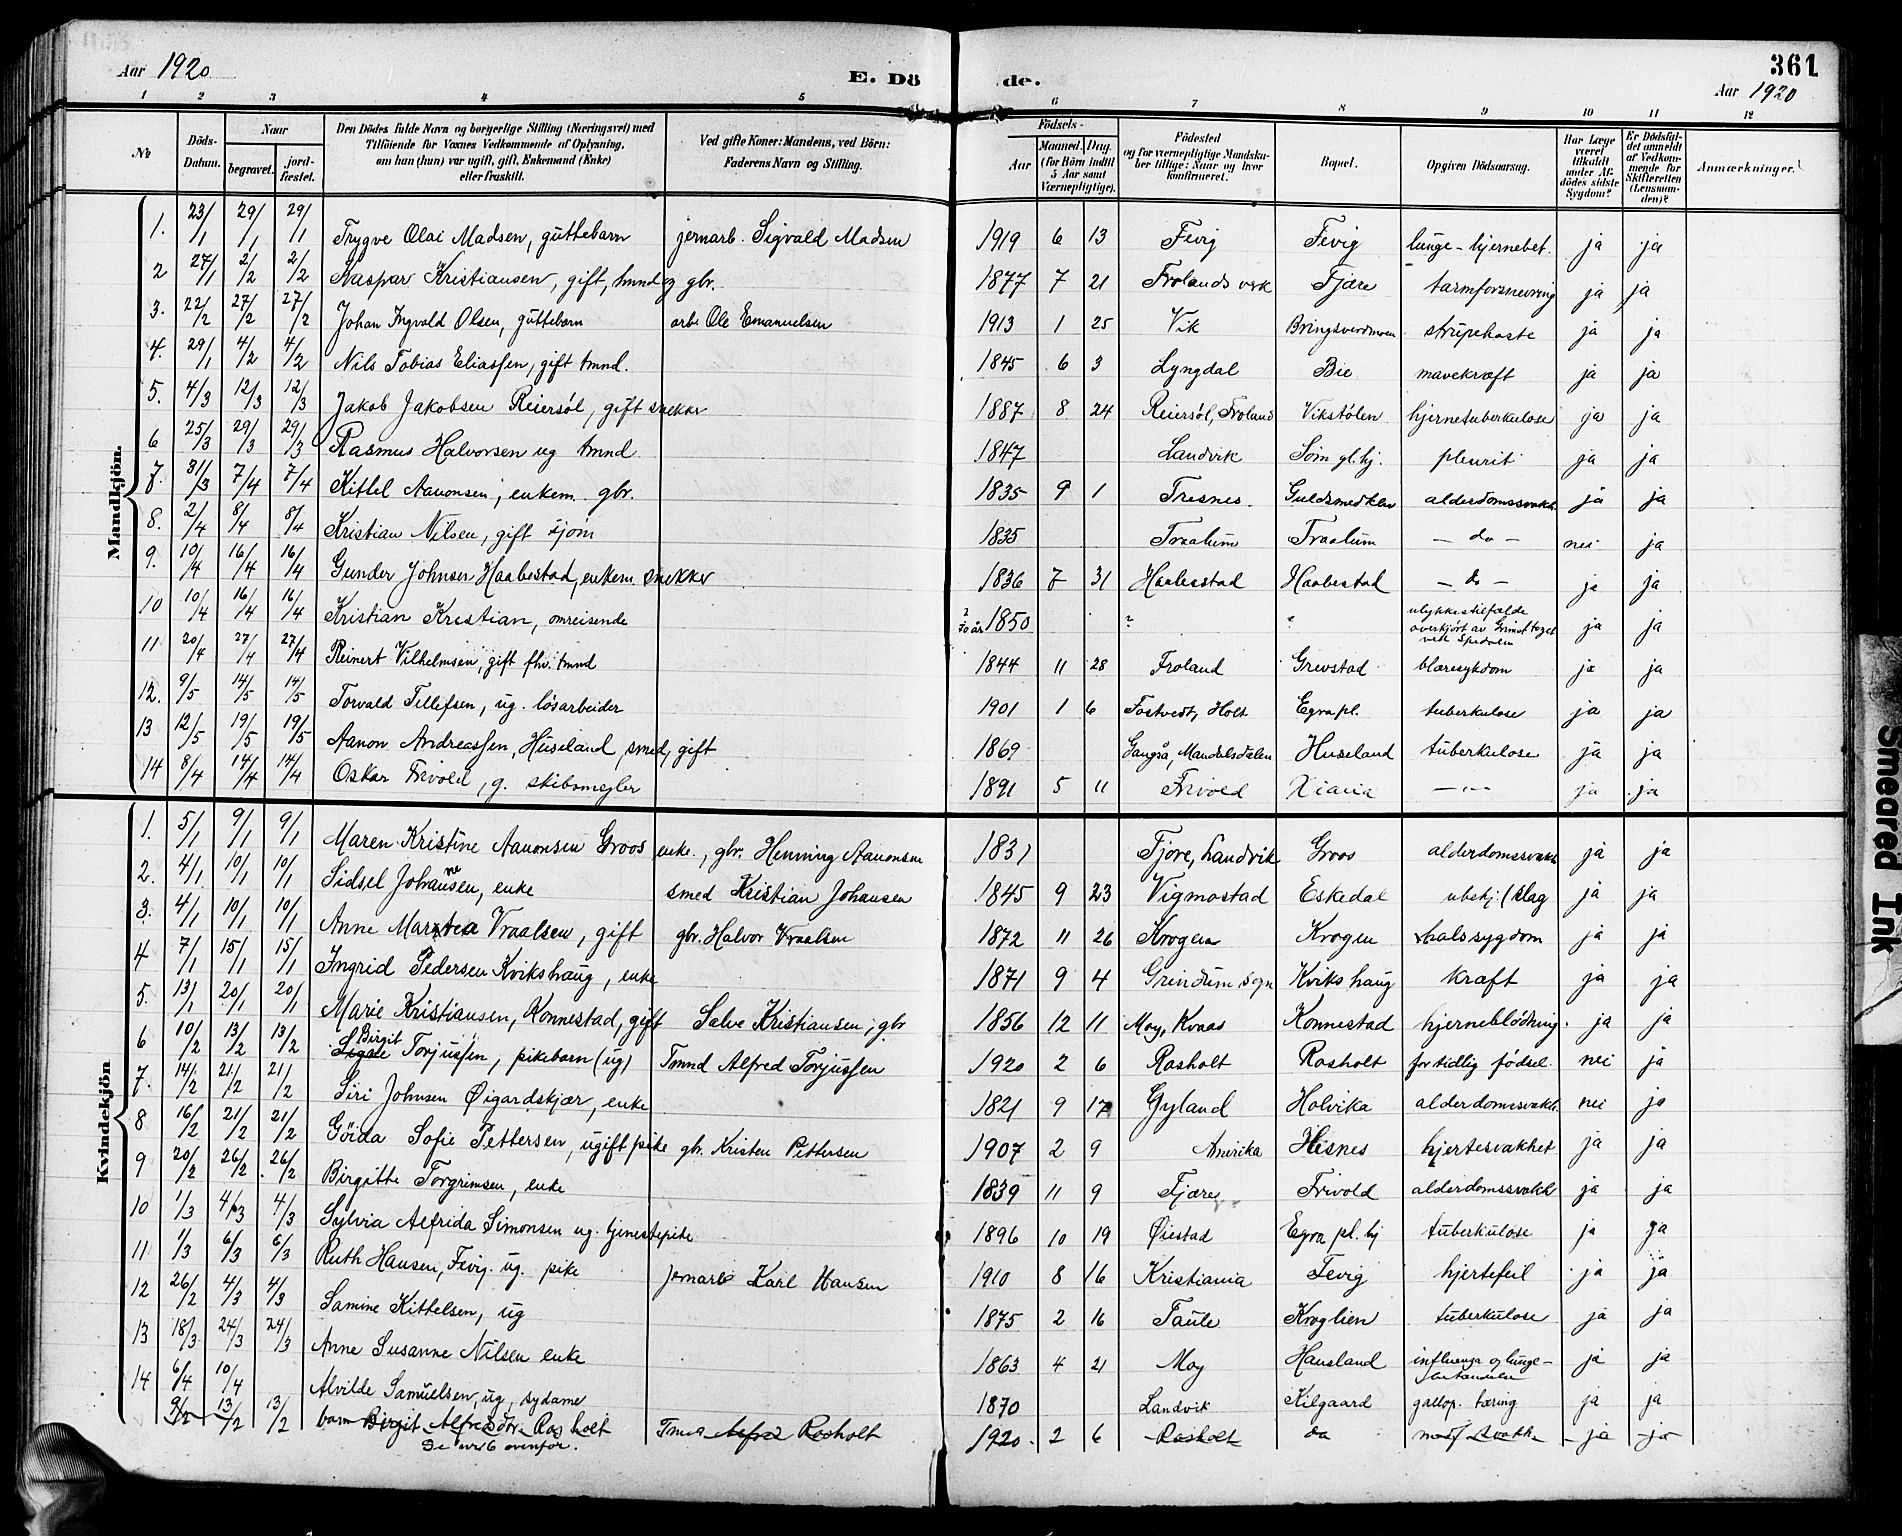 Aar 1920
E. Dö de.
361
Aar 1920
1 2 3 4 5 6 7 8 9 10 11 12
№
Döds-Datum.
Naar
begravet.
jord-fæstet.
Den Dödes fulde Navn og borgerlige Stilling (Næringsvei) med Tilföiende for Voxnes Vedkommende af Oplysning, om han (hun) var ugift, gift, Enkemand (Enke) eller fraskilt.
Ved gifte Koner: Mandens, ved Börn: Faderens Navn og Stilling.
Födsels-
Aar
Maaned. Dag.
(for Börn indtil 5 Aar samt Værnepligtige).
Födested og for værnepligtige Mandskaber tillige: Naar og hvor konfirmeret.
Bopæl.
Opgiven Dödsaarsag.
Har Læge været tilkaldt under Afdödes sidste Sygdom?
Er Dödsfaldet anmeldt af Vedkommende for Skifteretten (Lensmanden)?
Anmærkninger.
Mandkjön.
1. 23/1 29/1 29/1 Trygve Olai Madsen, guttebarn jernarb. Sigvald Madsen 1919 6 13 Fevig Fevig lunge-hjernebet. ja ja
2 27/1 2/2 2/2 Kaspar Kristiansen, gift, tmnd og gbr. 1877 7 21 Frolands verk Fjære tarmforsnevring ja ja
3. 22/2 27/2 27/2 Johan Ingvald Olsen, guttebarn arb. Ole Emanuelsen 1913 1 25 Vik Bringsverdmoen strupehoste ja ja
4. 29/1 4/2 4/2 Nils Tobias Eliassen, gift tmnd. 1845 6 3 Lyngdal Bie mavekræft ja ja
5. 4/3 12/3 12/3 Jakob Jakobsen Reiersöl, gift snekker 1887 8 24 Reiersöl, Froland Vikstölen hjernetuberkulose ja ja
6 25/3 29/3 29/3 Rasmus Halvorsen ug tmnd 1847 Landvik Söm gl.hj. pleurit ja ja
7. 31/3 7/4 7/4 Kittel Aanonsen, enkem. gbr. 1835 9 1 Tresnes. Guldsmedklev alderdomssvakh. ja ja
8. 2/4 8/4 8/4 Kristian Nilsen, gift sjöm 1835 Traalum Traalum - do - nei ja
9. 10/4 16/4 16/4 Gunder Johnsen Haabestad, enkem. snekker 1836 7 31 Haabestad Haabestad - do - ja ja
10 10/4 16/4 16/4 Kristian Kristian, omreisende ? 70 år 1850 ? ? ulykkestilfælde overkjört av Grimst toget ved Spedalen ja ja
11 20/4 27/4 27/4 Reinert Vilhelmsen, gift fhv. tmnd 1844 11 28 Froland Grevstad blæresykdom ja ja
12. 9/5 14/5 14/5 Torvald Tellefsen, ug. lösarbeider 1901 1 6 Fostvedt, Holt Egra pl. tuberkulose ja ja
13 12/5 19/5 19/5 Aanon Andreassen, Huseland, smed, gift 1869 Gangså, Mandalsdalen Huseland tuberkulose ja ja
14 8/4 14/4 14/4 Oskar Frivold, g. skibsmegler 1891 5 11 Frivold Xiania - " - ja ja
Kvindekjön
1. 5/1 9/1 9/1 Maren Kristine Aanonsen Groos enke., gbr. Henning Aanonsen 1831 Fjære, Landvik Groos alderdomssvakh ja ja
2. 4/1 10/1 10/1 Sidsel Johansen, enke smed Kristian Johansen 1845 9 23 Vigmostad Eskedal ubekj. (slag ja ja
3. 4/1 10/1 10/1 Anne Martea Vraalsen, gift gbr. Halvor Vraalsen 1872 11 26 Krogen Krogen halssygdom ja ja
4 7/1 15/1 15/1 Ingrid Pedersen Kvikshaug, enke 1871 9 4 Grindum sogn Kvikshaug kræft ja ja
5. 13/1 20/1 20/1 Marie Kristiansen, Konnestad, gift Salve Kristiansen, gbr 1856 12 11 Moy, Kvaas Konnestad hjerneblödning ja ja
6 10/2 13/2 13/2 Birgit Torjussen, pikebarn (ug) Tmnd Alfred Torjussen 1920 2 6 Rosholt Rosholt for tidlig födsel. nei ja
7. 14/2 21/2 21/2 Siri Johnsen Øigardskjær, enke 1821 9 17 Gyland Holvika alderdomssvakh. nei ja
8 16/2 21/2 21/2 Göida Sofie Pettersen, ugift pike gbr. Kristen Pettersen 1907 2 9 Amerika Hesnes hjertesvakhet ja ja
9 20/2 26/2 26/2 Birgitte Torgrimsen, enke 1839 11 9 Fjære Frivold alderdomssvakh ja ja
10 1/3 4/3 4/3 Sylvia Alfrida Simonsen ug. tjenestepike 1896 10 19 Øiestad Egra pl. hj tuberkulose ja ja
11 1/3 6/3 6/3 Ruth Hansen, Fevig. ug. pike jernarb Karl Hansen 1910 8 16 Kristiania Fevig hjertefeil ja ja
12 26/2 4/3 4/3 Samine Kittelsen, ug 1875 2 16 Taule Kroglien tuberkulose ja ja
13 18/3 24/3 24/3 Anne Susanne Nilsen enke 1863 4 21 Moy Hausland influenza og lunge- ja ja
14 6/4 10/4 Alvilde Samuelsen, ug, sydame 1870 Landvik Kilgaard gallop. tæring ja ja
9/2 13/2 13/2 barn Birgit Alfredsdtr. Rosholt Tmnd Alfred Rosholt 1920 2 6 Rosholt do svakh. ja ja
Se nr 6 ovenfor.
Smeared Ink